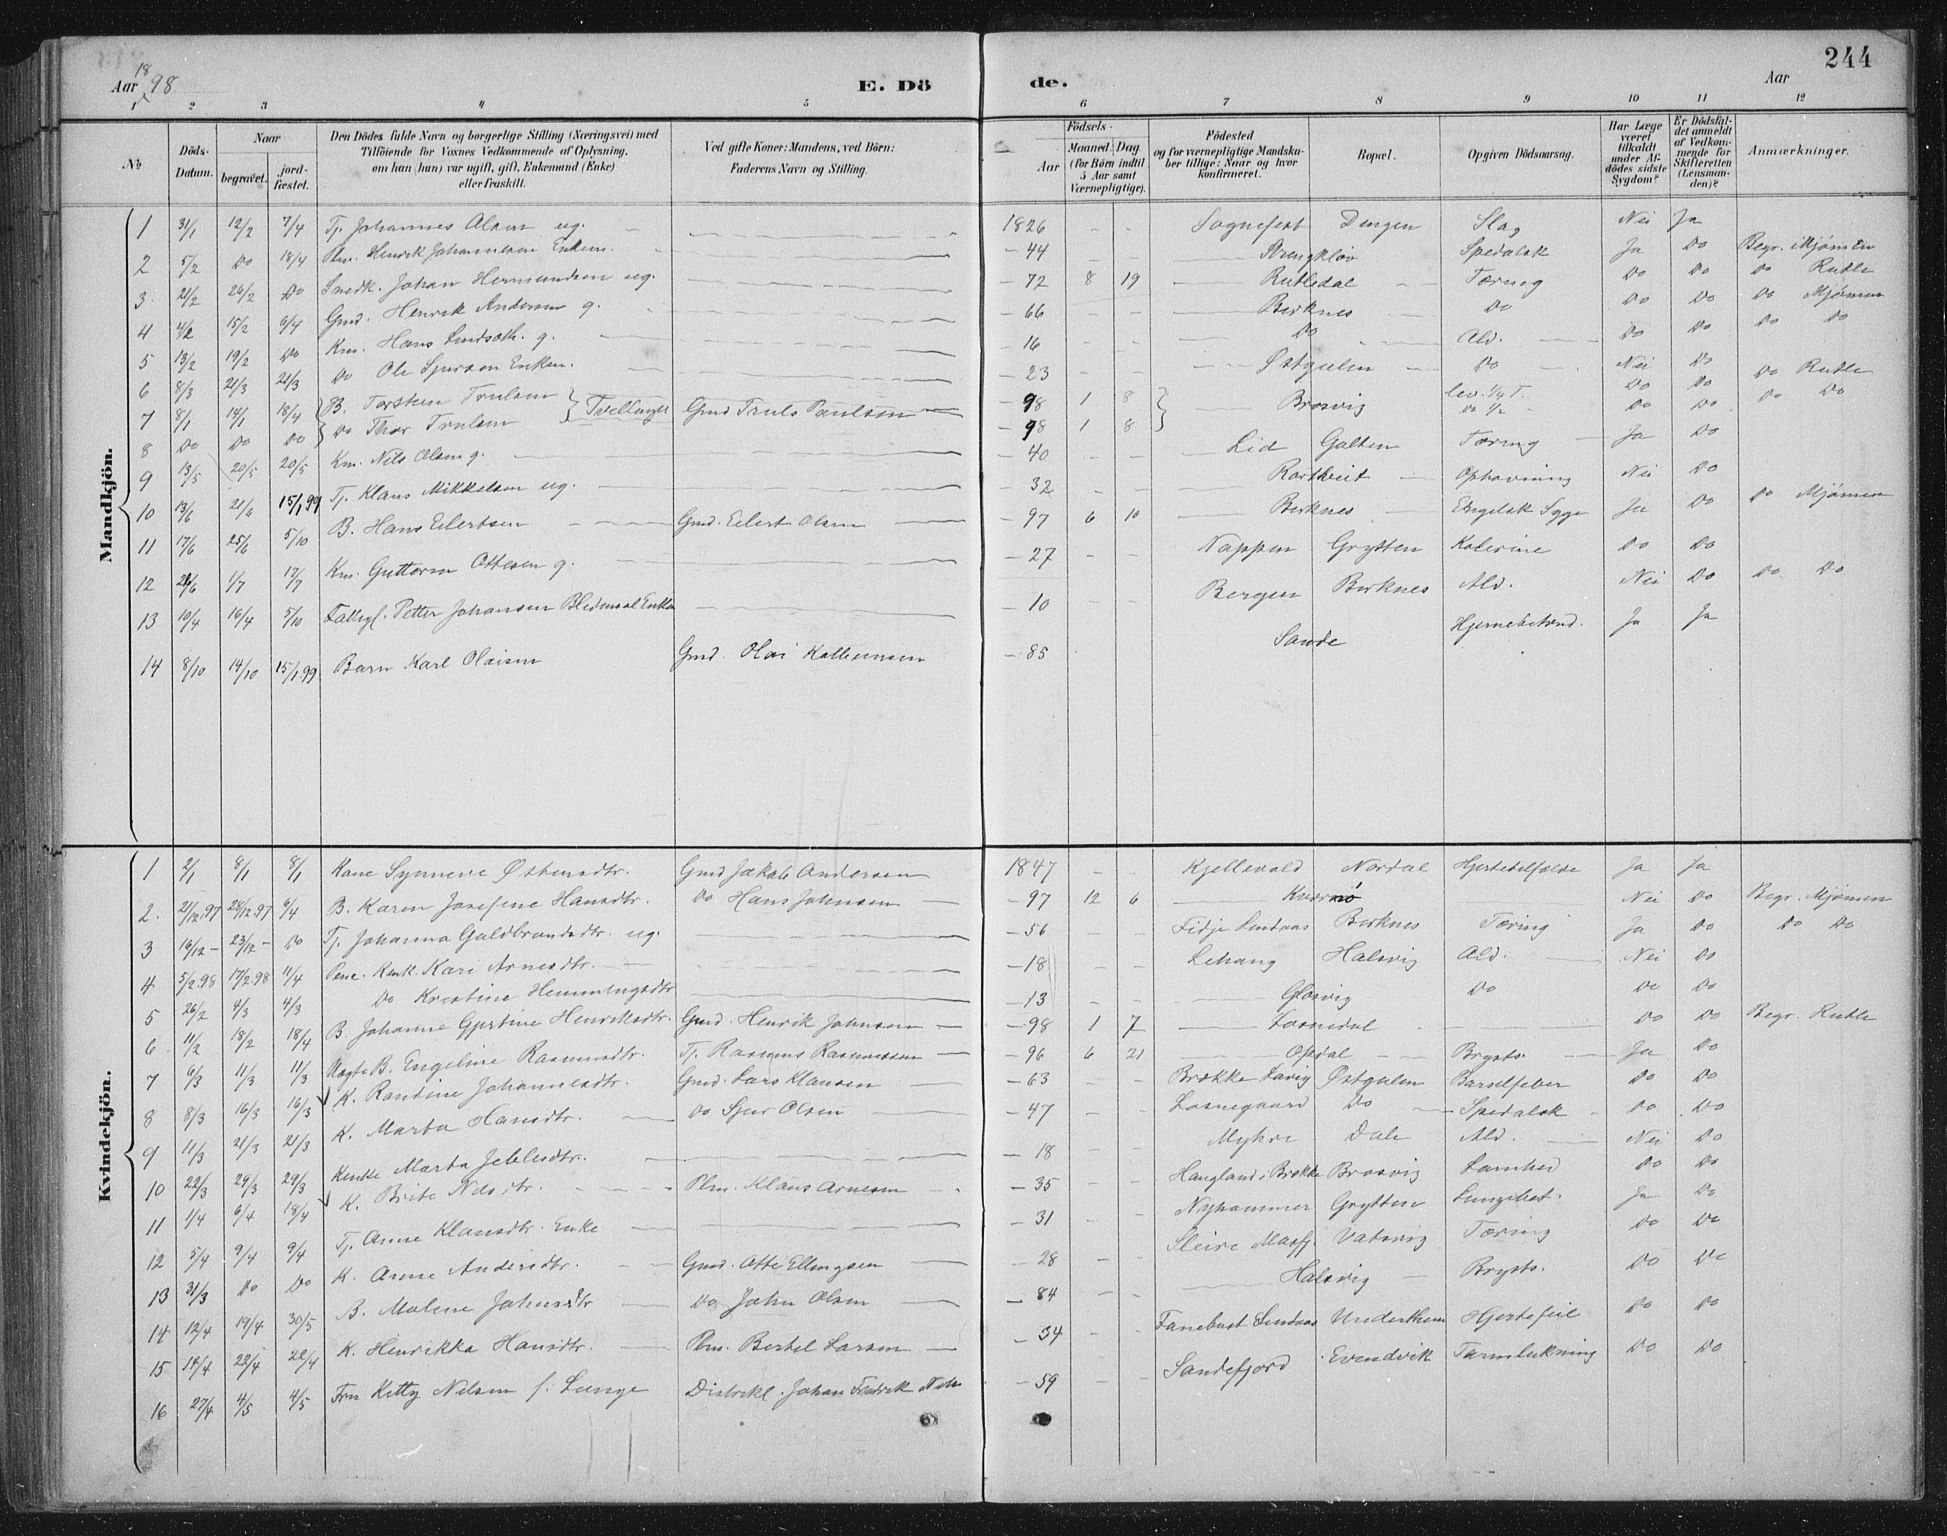 244
Aar 1898
E. Dö
de.
Aar
1 2 3 4 5 6 7 8 9 10 11 12
№
Döds-Datum.
Naar
begravet.
jord-fæstet.
Den Dödes fulde Navn og borgerlige Stilling (Næringsvei) med Tilföiende for Voxnes Vedkommende af Oplysning, om han (hun) var ugift, gift, Enkemand (Enke) eller fraskilt.
Ved gifte Koner: Mandens, ved Börn: Faderens Navn og Stilling.
Födsels-
Aar
Maaned. Dag
(for Börn indtil 5 Aar samt Værnepligtige).
Födested og for værnepligtige Mandskaber tillige: Naar og hvor konfirmeret.
Bopæl.
Opgiven Dödsaarsag.
Har Læge været tilkaldt under Afdödes sidste Sygdom?
Er Dödsfaldet anmeldt af Vedkommende for Skifteretten (Lensmanden)?
Anmærkninger.
Mandkjön.
1 31/1 12/2 7/4 Tj. Johannes Olsen ug. 1826 Sognefest Dingen Slag Nei Ja
2 5/2 Do 18/4 Henrik Johannesen Enkem. 44 Spedalsk Ja Do Begr. i Mjømen
3 21/2 26/2 Do Johan Hermundsen ug. 72 8 19 Rutledal Tæring Do Do Do Rutle
4 4/2 15/2 6/4 Gmd. Henrik Andersen g. 66 Birknes Do Do Do Do Mjømen
5 13/2 19/2 Do Km. Hans g. 16 Do Ald. Do Do Do Do
6 8/3 21/3 21/3 Do Ole Sjursen Enkem. 23 Østgulen Do Nei Do
7 8/1 14/1 18/4 B. Torsten Trulsen Tvillinger Gmd Truls Paulsen 98 1 8 Brosvig lev. 1/4 T. Do Do Do Rutle
8 Do Do Do Do Thor Trulsen 98 1 8 Do 1/2 Do Do Do Do
9 13/5 20/5 20/5 Km. Nils Olsen g. 40 Lid Galten Tæring Ja Do
10 13/6 21/6 15/1 99 Tj. Klaus Mikkelsen ug. 32 Ophovning Nei Do
11 17/6 25/6 5/10 B. Hans Eilertsen Gmd. Eilert Olsen 97 6 10 Birknes Engelsk Syge Ja Do Do Mjømen
12 26/6 1/7 17/7 Km. Guttorm Ottesen g. 27 Nappen Grytten Kolerine Do Do
13 10/4 16/4 5/10 Petter Johansen Enkem 10 Bergen Birknes Ald. Nei Do Do Do
14 8/10 14/10 15/1 99 Barn Karl Olaisen Gmd. Olai 85 Sande Hjernebetænd. Ja Ja
Kvindekjön.
1 2/1 8/1 8/1 Kone Synneve Østensdtr. Gmd Jakob Andersen 1847 Kjellevold Nordal Ja Ja
2 21/12 97 28/12 97 6/4 B. Karen Josefine Hansdtr. Do Hans Johnsen 97 12 6 Nei Do Begr. Mjømen
3 16/12 23/12 Do Tj. Johanna Guldbrandsdtr. ug. 56 Birknes Tæring Ja Do Do Do
4 5/2 98 17/2 98 11/4 Kari Arnesdtr. 18 Halsvig Ald. Nei Do
5 26/2 4/3 4/3 Do Kristine Hemmingsdtr 13 Glosvig Do Do Do
6 11/2 18/2 18/4 B Johanne Gjertine Henriksdtr. Gmd. Henrik Johnsen 98 1 7 Losnedal Do Do Begr. Rutle
7 6/3 11/3 11/3 B. Engeline Rasmusdtr. Tj. Rasmus Rasmussen 96 6 21 Opdal Brysts. Ja Do
8 8/3 16/3 16/3 K. Randine Johannesdtr. Gmd. Lars Klausen 63 Brække Lavig Østgulen Barselfeber Do Do
9 11/3 21/3 21/3 K. Marta Hansdtr. Do Sjur Olsen 47 Losnegaard Do Spedalsk Do Do
10 22/3 29/3 29/3 Marta 18 Myhre Dale Ald. Nei Do
11 1/4 6/4 18/4 K. Brite Nilsdtr. Plm. Klaus Arnesen 35 Haugland i Brække Brosvig Lamhed Do Do
12 5/4 9/4 9/4 Tj. Anne Klausdtr. Enke 31 Nyhammer Grytten Lungebet. Ja Do
13 31/3 Do Do K. Anne Andersdtr. Gmd. Otte Ellingsen 28 Sleire Masfj. Vatsvig Tæring Do Do
14 12/4 19/4 30/5 B. Malene Johnsdtr Do John Olsen 84 Halsvig Brysts. Do Do
15 14/4 22/4 22/4 K. Henrikka Hansdtr. Plm. Bertel Larsen 34 Fanebust Lindaas Hjertefeil Do Do
16 27/4 4/5 4/5 Fru Kitty Nilsen f. Lange Distriktl. Johan Fredrik 59 Sandefjord Evendvik Tarmlukning Do Do